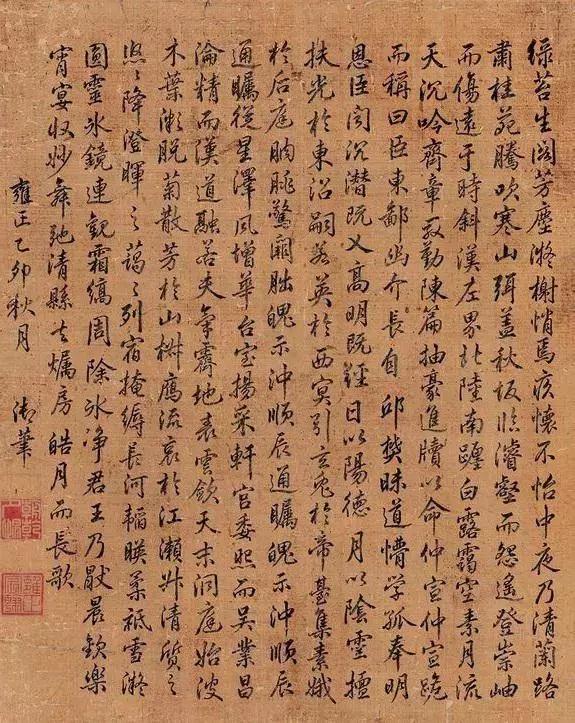 緑苔生閣芳塵凝榭悄焉疚懷不怡中夜乃清蘭路
肅桂苑騰吹寒山弭蓋秋坂臨濬壑而怨遙登崇岫
而傷遠于時斜漢左界北陸南躔白露靄空素月流
天沉吟齊章殷勤陳篇抽豪進牘以命仲宣仲宣跪
而稱曰臣東鄙幽介長自邱樊昧道懵學孤奉明
恩臣聞沉潛既义高明既經日以陽德月以陰靈擅
扶光於東沼嗣若英於西冥引玄兔於帝臺集素娥
於后庭朒朓驚闕朏魄示沖順辰通矚魄示沖順辰
通矚從星澤風增華台室揚采軒宮委照而吴業昌
淪精而漢道融若夫氣霽地表雲斂天末洞庭始波
木葉漸脱菊散芳於山樹鴈流哀於江瀨升清質之
悠〻降澄暉之藹〻列宿掩縟長河韜暎柔祇雪凝
圓靈冰鏡連觀霜縞周除冰净君王乃厭晨歡樂
宵宴收妙舞弛清縣去燭房皓月而長歌
雍正乙卯秋月 御筆